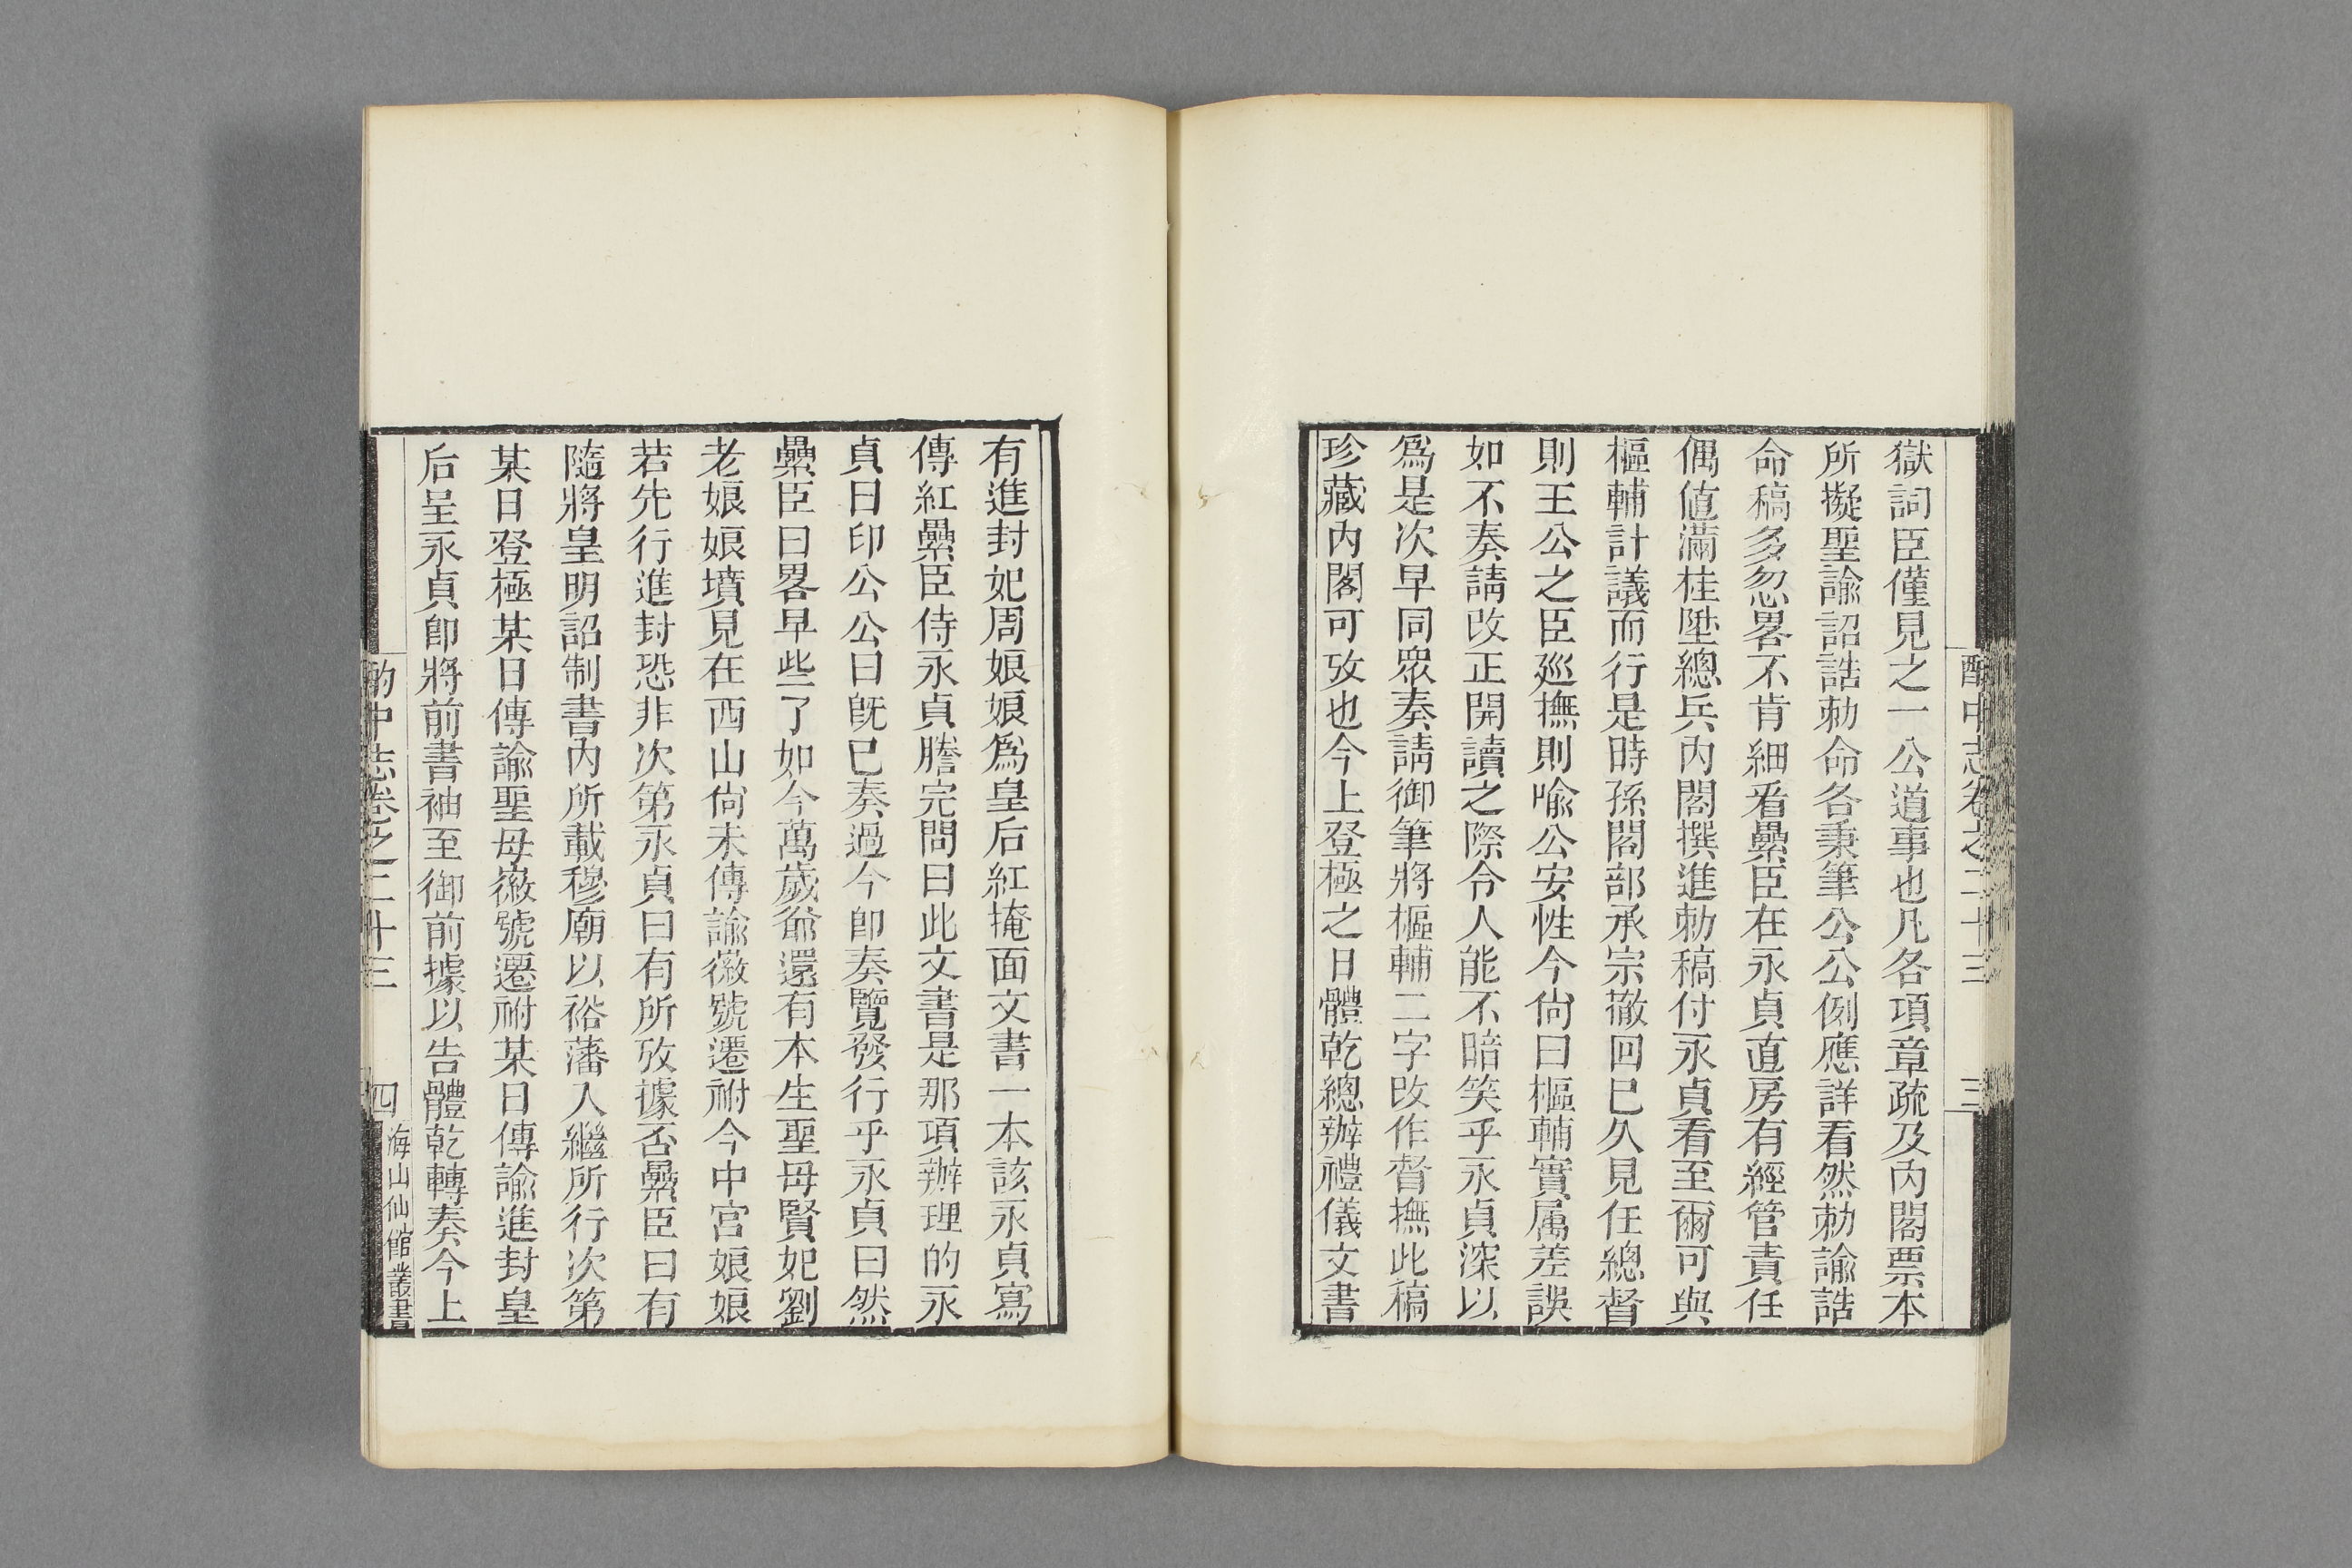 酌中志卷之二十三 三
獄詞臣僅見之一公道事也凡各項章疏及內閣票本
所擬聖諭詔誥勅命各秉筆公公例應詳看然勅諭誥
命稿多忽畧不肯細看纍臣在永貞直房有經管責任
偶值滿桂陞總兵內閣撰進勅稿付永貞看至爾可與
樞輔計議而行是時孫閣部承宗撤回已久見任總督
則王公之臣廵撫則喻公安性今尙曰樞輔實属差誤
如不奏請改正開讀之際令人能不暗笑乎永貞深以
爲是次早同眾奏請御筆將樞輔二字改作督撫此稿
珍藏內閣可攷也今上登極之日體乾總辦禮儀文書
有進封妃周娘娘爲皇后紅掩面文書一本該永貞寫
傳紅纍臣侍永貞謄完問曰此文書是那項辦理的永
貞曰印公公曰旣已奏過今卽奏覽發行乎永貞曰然
纍臣曰畧早些了如今萬歲爺還有本生聖母賢妃劉
老娘娘墳見在西山尙未傳諭徽號遷祔今中宮娘娘
若先行進封恐非次第永貞曰有所攷據否纍臣曰有
隨將皇明詔制書內所載穆廟以裕藩入繼所行次第
某日登極某日傳諭聖母徽號遷祔某日傳諭進封皇
后呈永貞卽將前書袖至御前據以告體乾轉奏今上
酌中志卷之二十三 四 海山仙館叢書